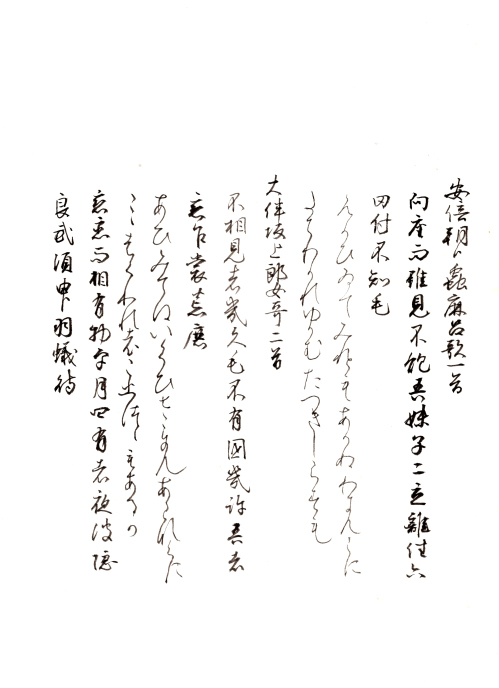 安倍朝臣蟲麻呂歌一首
向座而雖見不飽吾妹子二立離徃六
田付不知毛
むかひゐてみれともあかぬわきもこに
たちわかれゆかむたつきしらすも
大伴坂上郎女哥二首
不相見者幾久毛不有國幾許吾者
戀乍裳荒鹿
あひみてはいくひさゝにもあらなくに
こゝたくわれはこひつゝもあるか
戀戀而相有物乎月四有者夜波隠
良武須臾羽蟻待